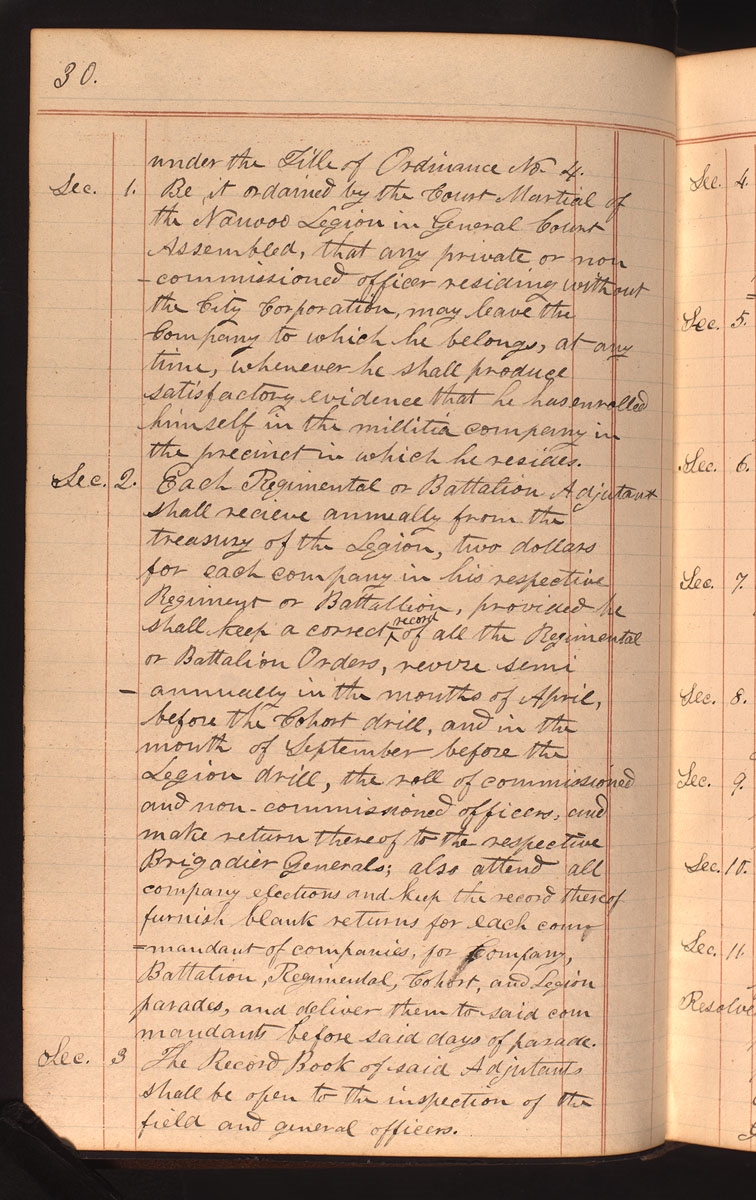 30.
under the Title of Ordinance No 4.
Sec. 1. Be it ordained by the Court Martial of
the Nauvoo Legion in General Court
Assembled, that any private or non
-commissioned officer residing without
the City Corporation, may leave the
Company to which he belongs, at any
time, whenever he shall produce
satisfactory evidence that he has enrolled
himself in the militia company in
the precinct in which he resides.
Sec. 2. Each Regimental or Battalion Adjutant
shall recieve annually from the
treasury of the Legion, two dollars
for each company in his respective
Regiment or Battallion, provided he
shall keep a correct record of all the Regimental
or Battalion Orders, revise semi
- annually in the months of April,
before the Cohort drill, and in the
month of September before the
Legion drill, the roll of commissioned
and non-commissioned officers, and
make return thereof to the respective
Brigadier Generals; also attend all
company elections and keep the record thereof
furnish blank returns for each com
=mandant of companies, for Company,
Battalion, Regimental, Cohort, and Legion
parades, and deliver them to said com
mandants before said days of parade.
Sec. 3 The Record Book of said Adjutants
shall be open to the inspection of the
field and general officers.
Sec. 4.
Sec. 5.
Sec. 6.
Sec. 7.
Sec. 8.
Sec. 9.
Sec. 10.
Sec. 11.
Resolve